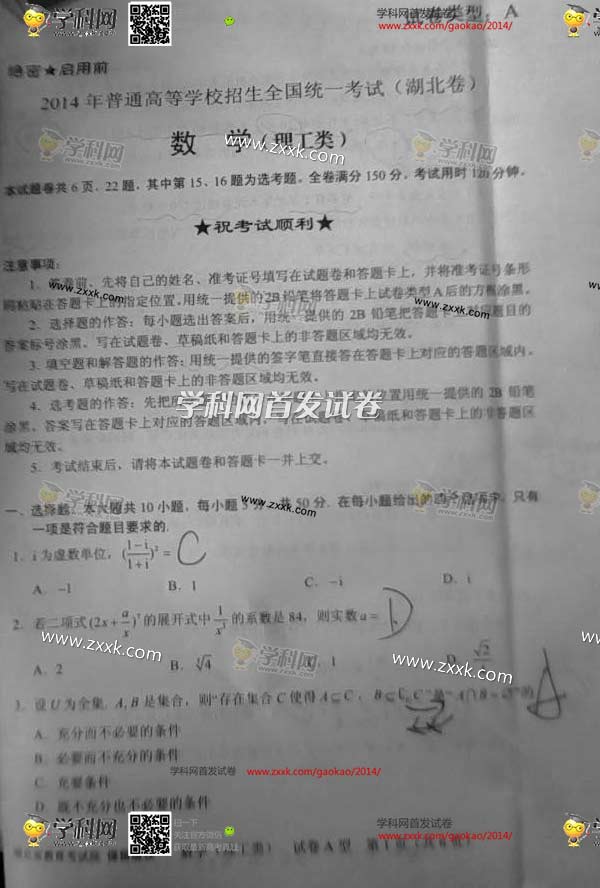 学科网
试卷类型：A
www.zxxk.com/gaokao/2014/
绝密★启用前
2014 年普通高等学校招生全国统一考试（湖北卷）
数 学（理工类）
学科网
www.zxxk.com
本试题卷共 6 页，22 题，其中第 15、16 题为选考题。全卷满分 150 分。考试用时 120 分钟。
★祝考试顺利★
www.zxxk.com
注意事项：
1. 答卷前，先将自己的姓名、准考证号填写在试题卷和答题卡上，并将准考证号条形
码粘贴在答题卡上的指定位置。用统一提供的2B铅笔将答题卡上试卷类型A后的方框涂黑。
www.zxxk.com
www.zxxk.com
2. 选择题的作答：每小题选出答案后，用统一提供的 2B 铅笔把答题卡上对应题目的
答案标号涂黑。写在试题卷、草稿纸和答题卡上的非答题区域均无效。
3. 填空题和解答题的作答：用统一提供的签字笔直接答在答题卡上对应的答题区域内。
写在试题卷、草稿纸和答题卡上的非答题区域均无效。
4. 选考题的作答：先把所 置用统一提供的 2B 铅笔
学科网首发试卷
涂黑。答案写在答题卡上对应的答题区域内，写在试题卷、草稿纸和答题卡上的非答题区
域均无效。
5. 考试结束后，请将本试题卷和答题卡一并上交。
学科网
一、选择题：本大题共 10 小题，每小题 5 分，共 50 分. 在每小题给出的四个选项中，只有
www.zxxk.com
一项是符合题目要求的.
1. i 为虚数单位，((1-i)/(1+i))²= C
A. -1 B. 1 C. -i D. i
2. 若二项式(2x+a/x)⁷的展开式中1/x³的系数是 84，则实数a= D
www.zxxk.com
学科网
www.zxxk.com
A. 2 B. ⁵√4 C. 1 D. √2/4
3. 设 U 为全集. A, B 是集合，则“存在集合 C 使得 A⊆C，B⊆∁ᵤC”是“A∩B=∅”的 A
A. 充分而不必要的条件
B. 必要而不充分的条件
C. 充要条件
D. 既不充分也不必要的条件
学科网首发试卷
www.zxxk.com/gaokao/2014/
学科网
扫一下
关注官方微信
获取最新高考真题
试卷 A 型
学科网首发试卷
www.zxxk.com/gaokao/2014/